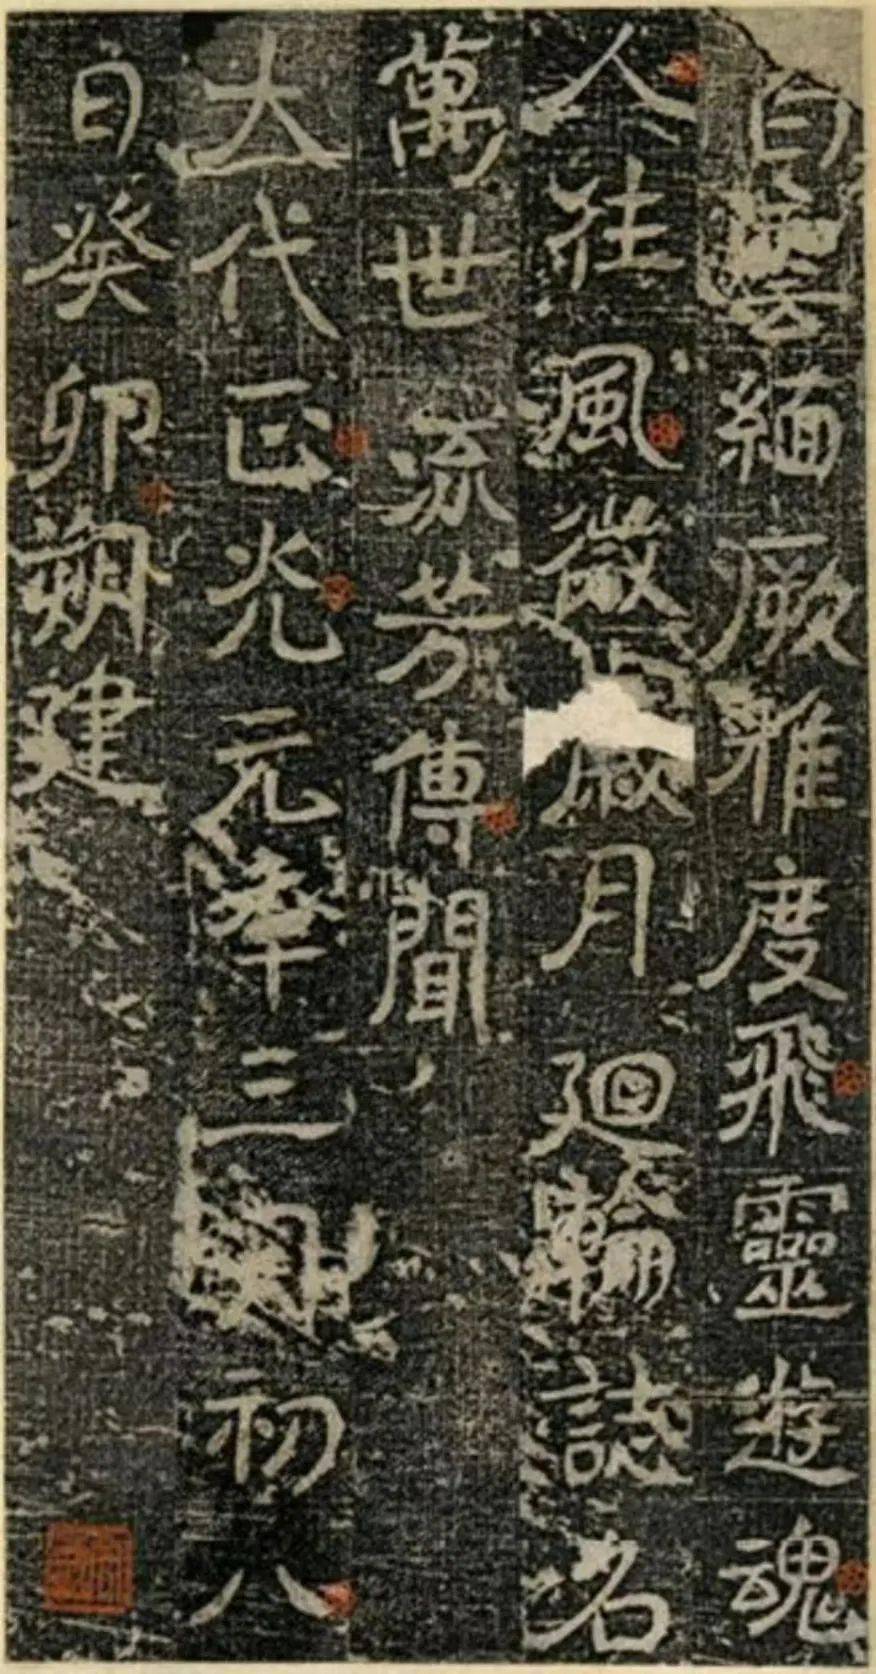 白雲緬厥雅度飛靈遊魂
人往風微歲月廻輪誌名
萬世流芳傳聞
大代正光元年三初八
日癸卯朔建